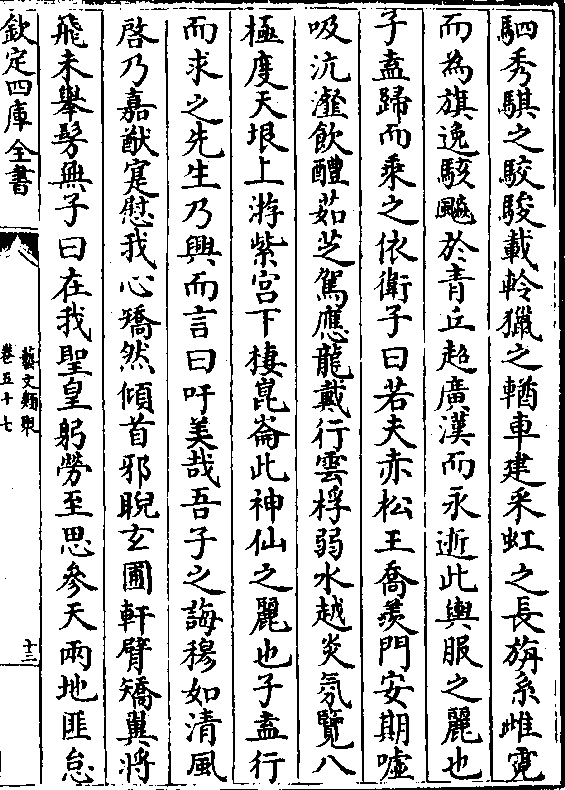 駟秀騏之駮駿載軨獵之輶車建采虹之長旃系雌霓
而為旗逸駭飈於青丘超廣漢而永逝此輿服之麗也
子盍歸而乘之依衛子曰若夫赤松王喬羨門安期噓
吸沆瀣飲醴茹芝駕應龍戴行雲桴弱水越炎氛覽八
極度天垠上游紫宫下棲崑崙此神仙之麗也子盍行
而求之先生乃興而言曰吁美哉吾子之誨穆如清風
啓乃嘉猷寔慰我心矯然傾首邪睨玄圃軒臂矯翼將
飛未舉髣無子曰在我聖皇躬勞至思參天兩地匪怠
欽定四庫全書
藝文類聚
卷五十七
十三